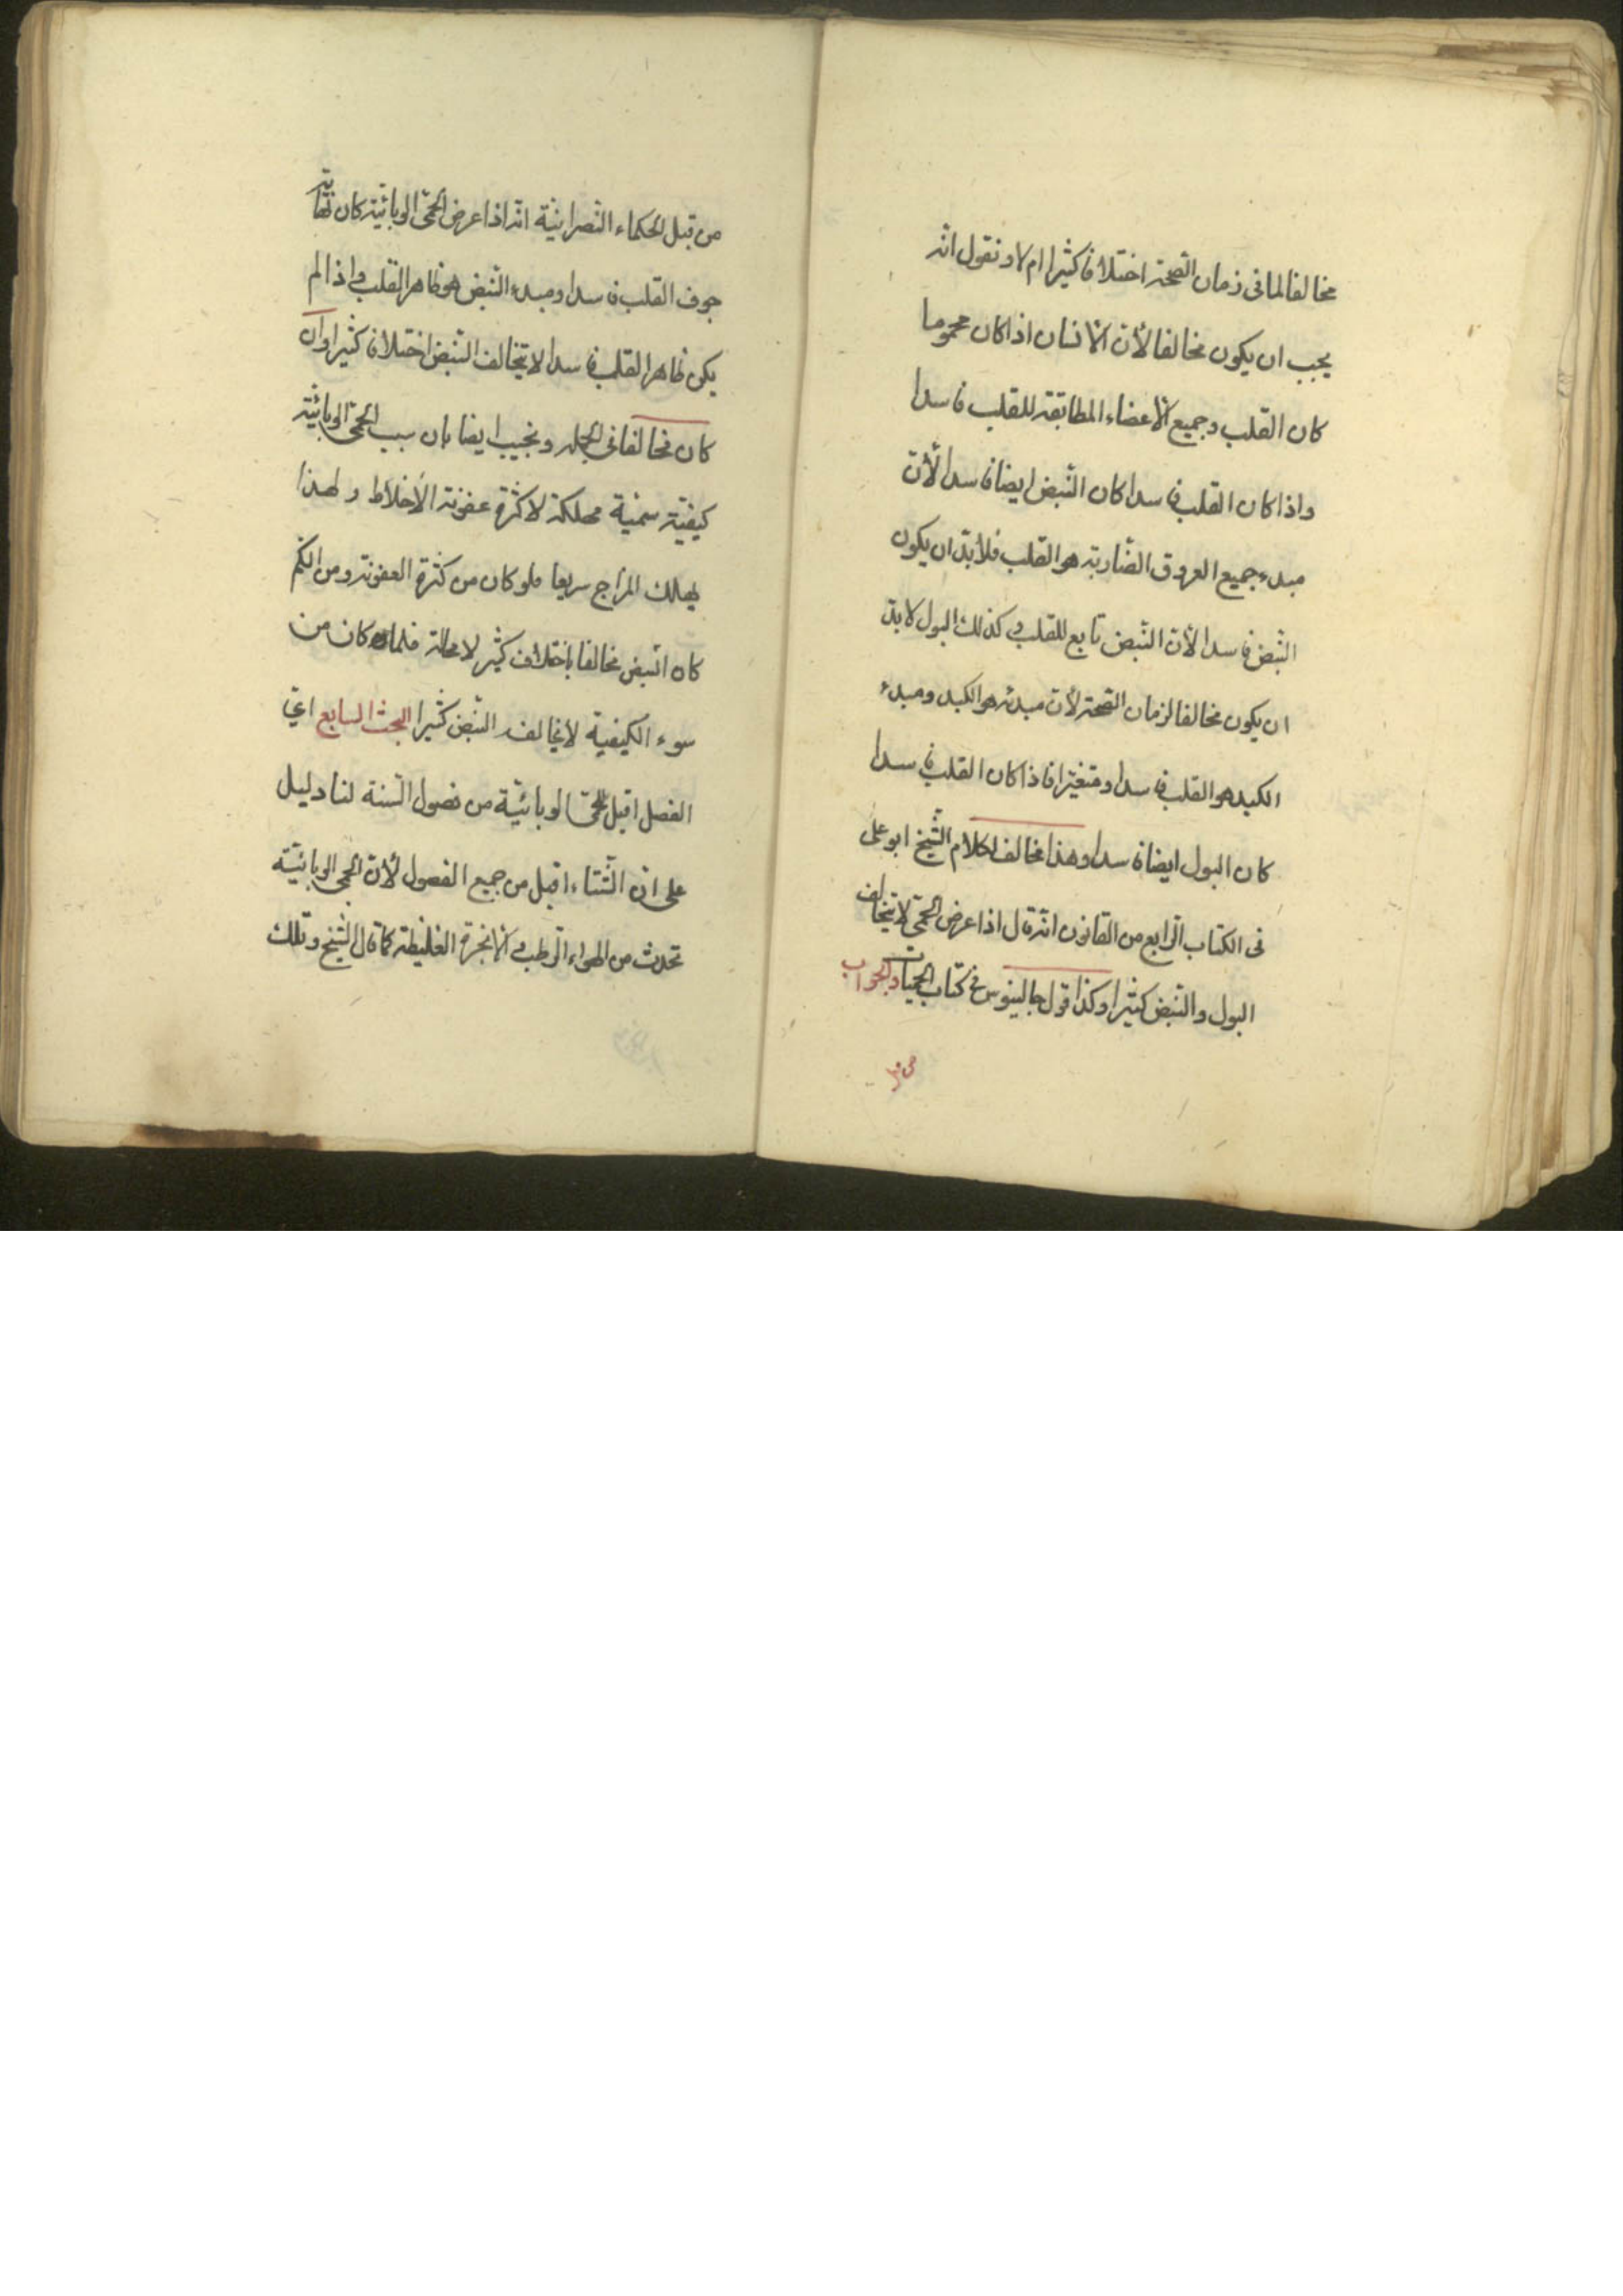 مخالفا لما فى زمان الصّحة اختلافا كثيرا ام لا و نقول انّه
يجب ان يكون مخالفا لأنّ الانسان اذا كان محموما
كان القلب و جميع الاعضاء المطابقة للقلب فاسدا
و اذا كان القلب فاسدا كان النّبض ايضا فاسدا لأنّ
مبدء جميع العروق الضّاربة هو القلب فلا بدّ ان يكون
النّبض فاسدا لأنّ النّبض تابع للقلب و كذلك البول لا بدّ
ان يكون مخالفا لزمان الصّحة لأنّ مبدئه هو الكبد و مبدء
الكبد هو القلب فاسدا و متغيّرا فاذا كان القلب فاسدا
كان البول ايضا فاسدا و هذا مخالف لكلام الشّيخ ابو على
فى الكتاب الرّابع من القانون انّه قال اذا عرض الحمّى لا يتخالف
البول و النّبض كثيرا و كذا قول جالينوس فى كتاب الحميات و الجواب
من قبل
من قبل الحكماء النّصرانيّة انّه اذا عرض الحمّى الوبائيّة كان نهاية
جوف القلب فاسدا و مبدء النّبض هو ظاهر القلب و اذا لم
يكن ظاهر القلب فاسدا لا يتخالف النّبض اختلافا كثيرا و ان
كان مخالفا فى الجملة و نجيب ايضا بان سبب الحمّى الوبائيّة
كيفيّة سمّية مهلكة لا كثرة عفونة الأخلاط و لهذا
يهلك المزاج سريعا فلو كان من كثرة العفونة و من الكم
كان النبض مخالفا باختلاف كثير لا محالة فلما كان من
سوء الكيفية لا يخالف النّبض كثيرا البحث السابع اىّ
الفصل اقبل للحمّى الوبائيّة من فصول السّنة لنا دليل
على ان الشّتاء اقبل من جميع الفصول لأنّ الحمى الوبائيّة
تحدث من الهواء الرّطب و الابخرة الغليظة كما قال الشّيخ و تلك